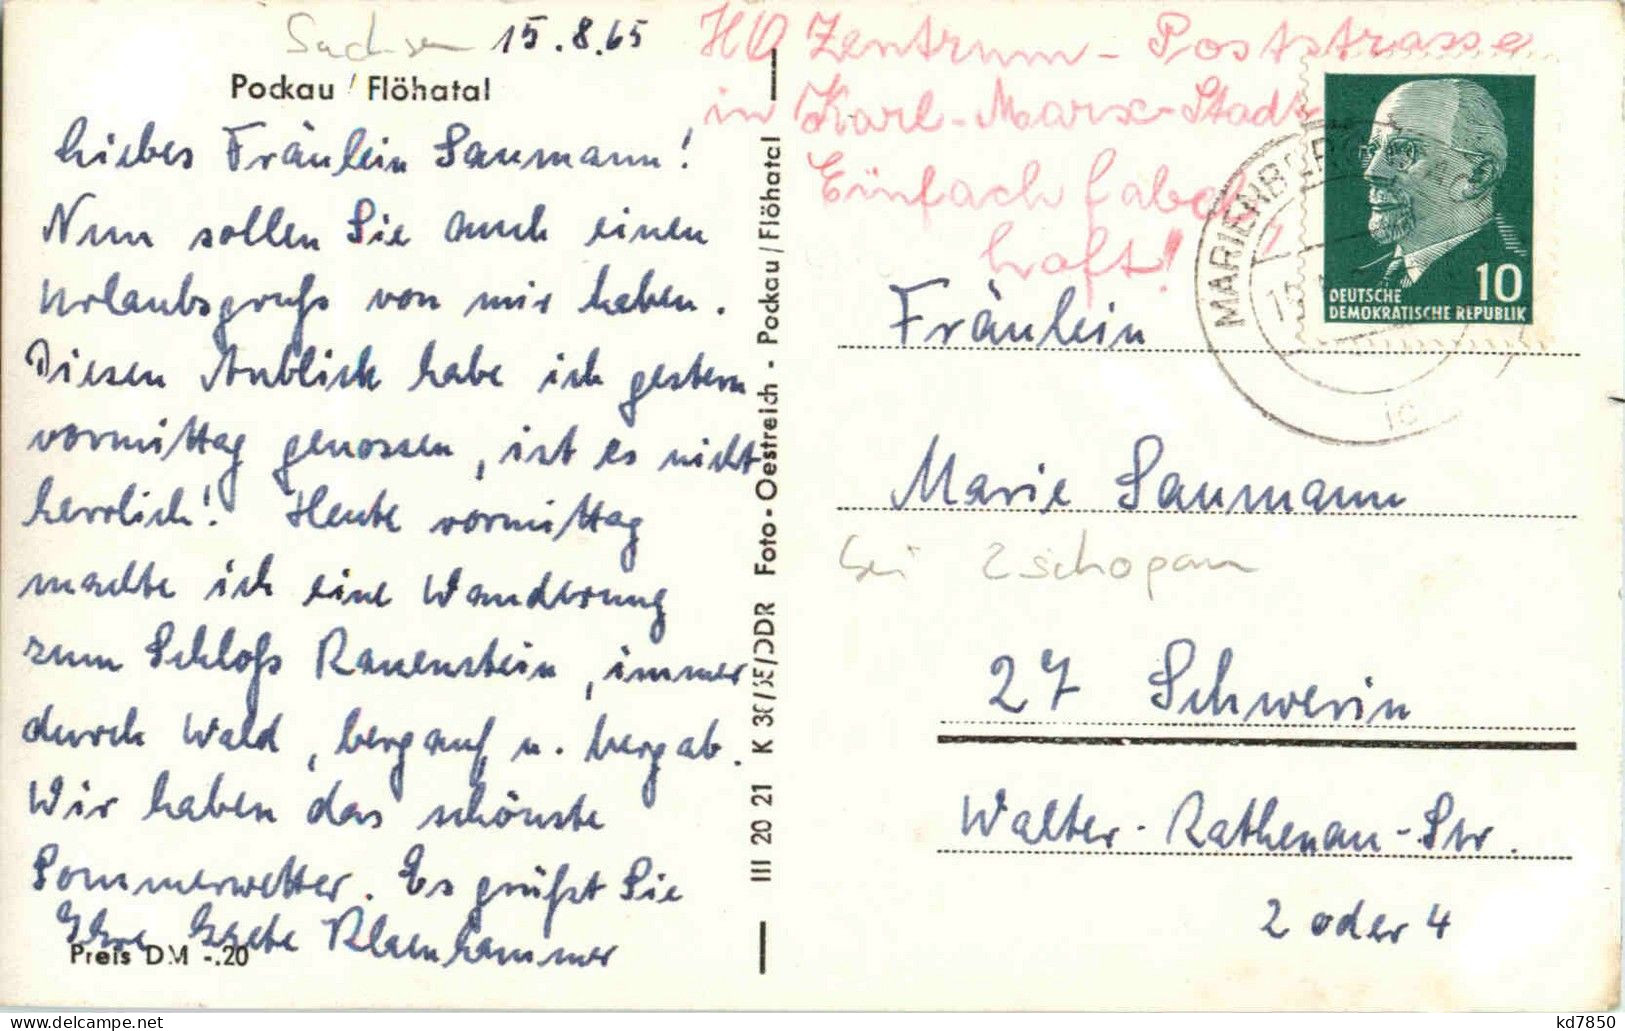 Sachsen 15.8.65
Pockau / Flöhatal
Liebes Fräulein Saumann!
Nun sollen Sie auch einen
Urlaubsgruß von mir haben.
Diesen Anblick habe ich gestern
vormittag genossen, ist es nicht
herrlich! Heute vormittag
machte ich eine Wanderung
zum Schloß Rauenstein, immer
durch Wald, bergauf u. bergab.
Wir haben das schönste
Sommerwetter. Es grüßt Sie
Ihre Blauenhammer
Preis DM -.20
III 20 21 K 30/65/DDR Foto-Oestreich - Pockau/Flöhatal
HO Zentrum - Poststrasse
in Karl-Marx-Stadt
Einfach fabel-
haft!
MARIENBERG
DEUTSCHE 10
DEMOKRATISCHE REPUBLIK
Fräulein
Marie Saumann
bei Zschopau
27 Schwerin
Walter-Rathenau-Str.
2 oder 4
kd7850